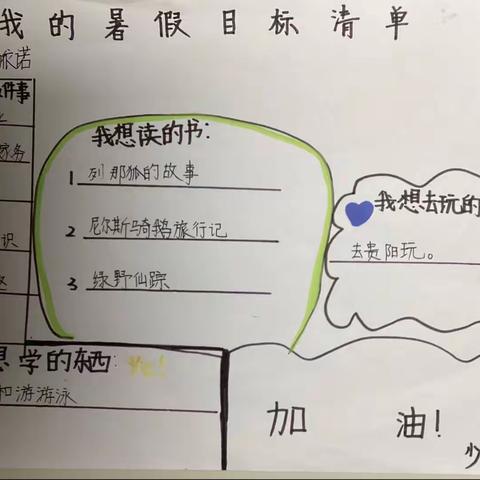 我的暑假目标清单
诺
件事
家务
识
我想读的书：
1 列那狐的故事
2 尼尔斯骑鹅旅行记
3 绿野仙踪
我想去玩的
去贵阳玩。
想学的东西：Ye!
和游游泳
加油！